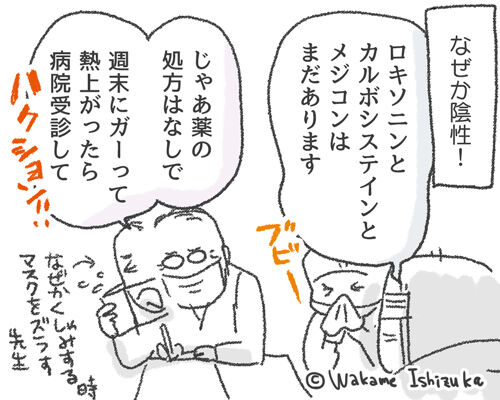 なぜか陰性！
ロキソニンと
カルボシステインと
メジコンは
まだあります
ブビー
じゃあ薬の
処方はなしで
週末にガーって
熱上がったら
病院受診して
ハクション!!
なぜかくしゃみする時
マスクをズラす
先生
© Wakame Ishizuka